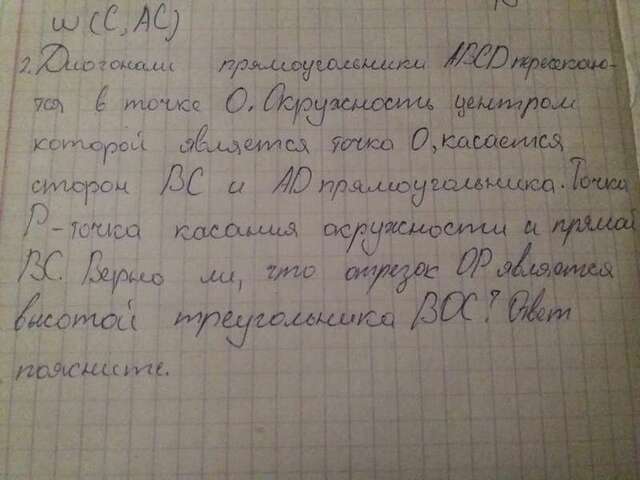 ω(C, AC)
2. Диогонали прямоугольники ABCD пересекаю-
тся в точке O. Окружность центром
которой является точка O, касается
сторон BC и AD прямоугольника. Точка
P - точка касания окружности и прямой
BC. Верно ли, что отрезок OP является
высотой треугольника BOC? Ответ
поясните.